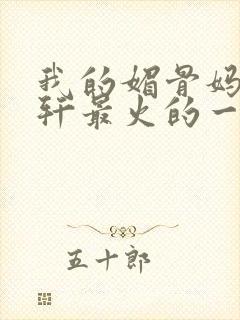 我的媚骨妈
轩最火的一
五十郎